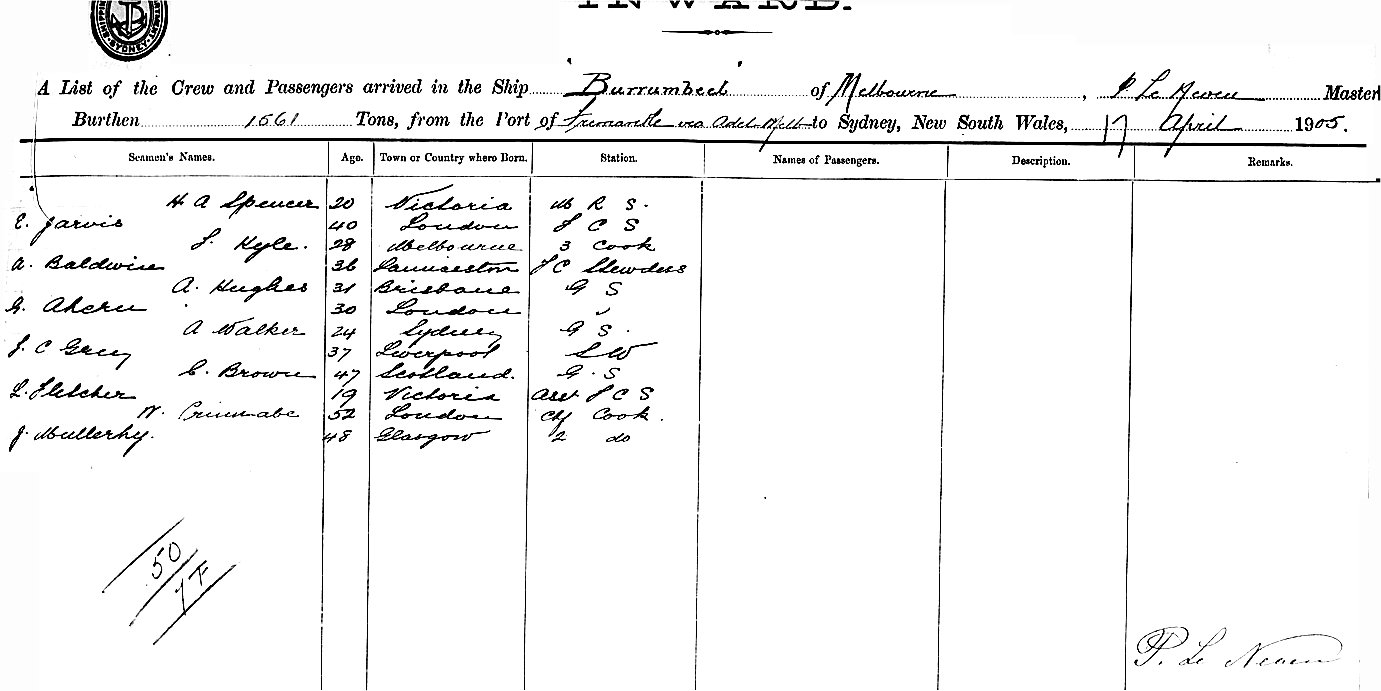 INWARD.
SYDNEY
A List of the Crew and Passengers arrived in the Ship Burrumbeet of Melbourne, P Le Neveu Master
Burthen 1561 Tons, from the Port of Fremantle via Adel Melb to Sydney, New South Wales, 17 April 1905.
Seamen's Names. Age. Town or Country where Born. Station. Names of Passengers. Description. Remarks.
H A Spencer 20 Victoria M R S.
E. Jarvis 40 London F C S
Kyle. 28 Melbourne 3 Cook
A. Baldwin 36 Launceston F C Stewdess
A. Hughes 31 Brisbane G S
G. Ahern 30 London "
A Walker 24 Sydney G S.
J. C Grey 37 Liverpool S W
C. Brown 47 Scotland. G. S
L. Fletcher 19 Victoria Asst F C S
W. 52 London Chf Cook.
J. Mullerhy. 48 Glasgow 2 do
50
1F
P. Le Neveu